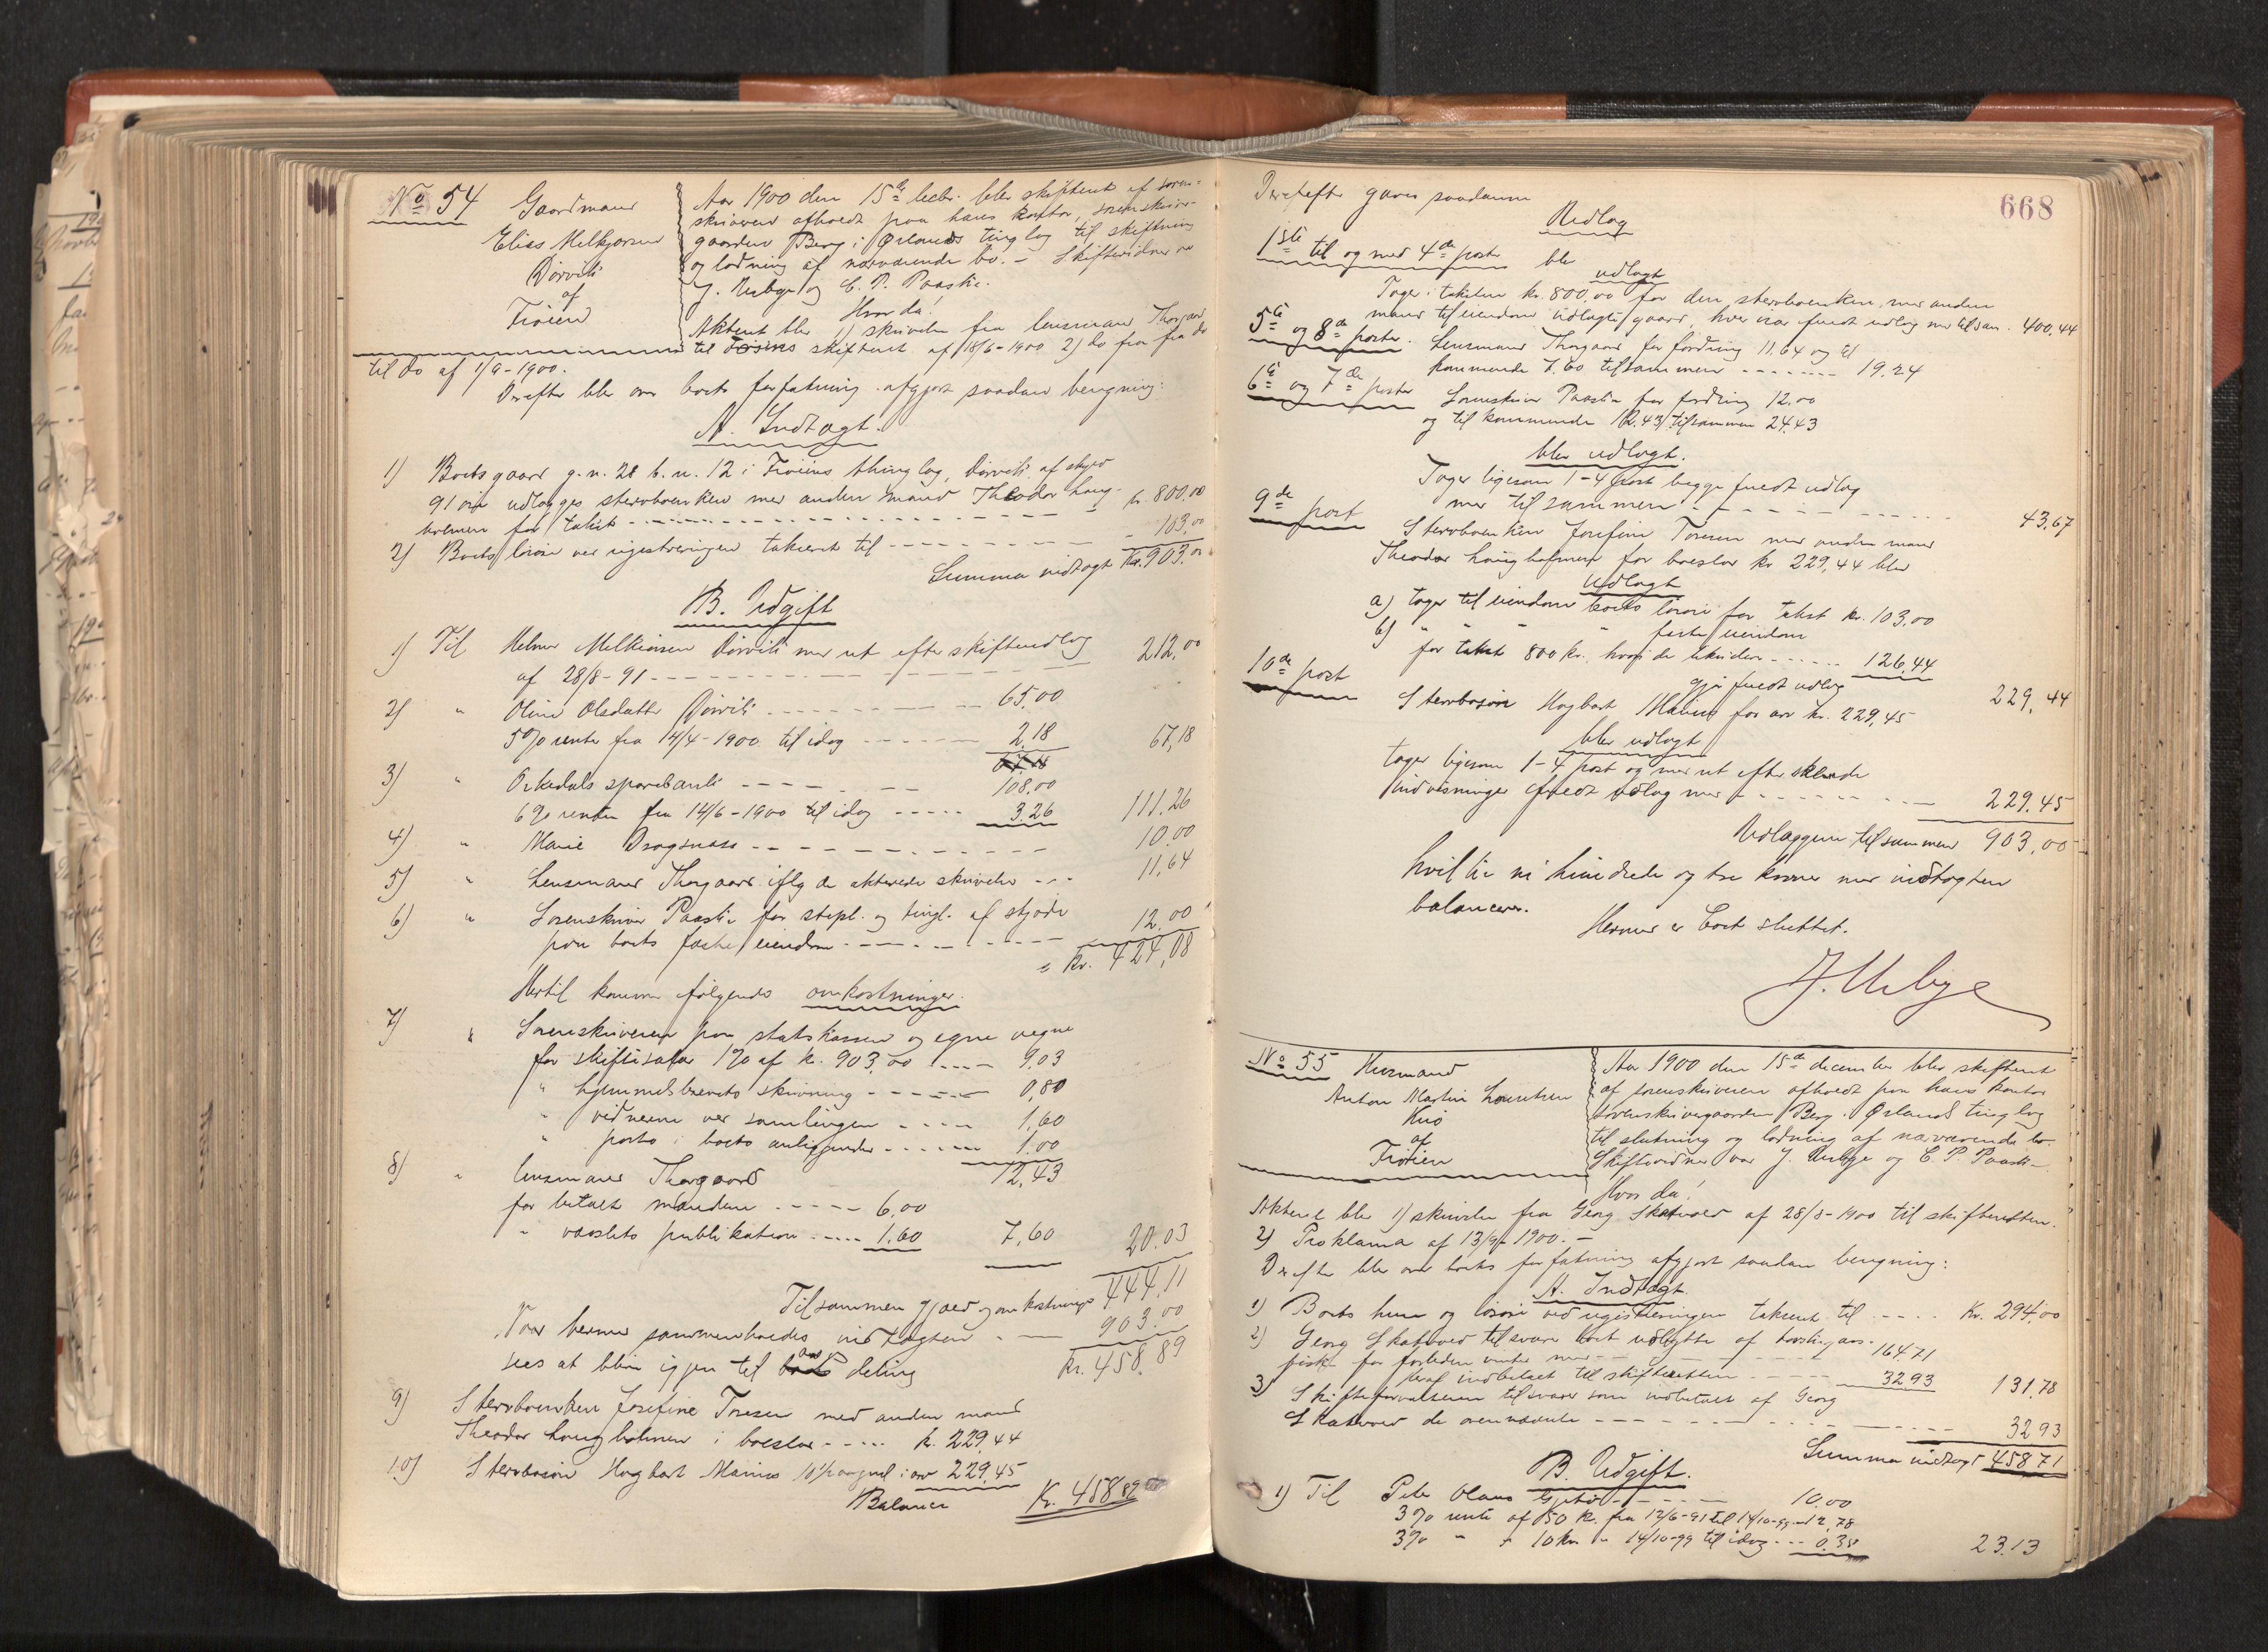 No 54 Gaardmand
Elias Melkjorsen
Dørvik
af
Frøien
Aar 1900 den 15de decbr. blev skifteret af soren=
skriveren afholdt paa hans kontor, sorenskriver-
gaarden Berg i Ørlands tinglag til skiftning
og lodning af nærværende bo. - Skiftevidner var
J. Uebye og C. P. Paaske.
Hvor da!
Akteret blev 1) skrivelse fra lensmand Thorgaard
til skifteret af 18/6-1900 2) do fra fra do
til do af 1/9-1900.
Derefter blev over boets forfatning afgjort saadan beregning:
A. Indtægt.
1) Boets gaard g.n. 28 b.n. 12 i Frøiens thinglag, Dørvik af skyld
91 øre udlægges stervboenken med anden mand Theodor Laug-
holmen for takst - - - kr. 800.00
2) Boets løsøre ved registreringen takseret til - - - 103.00
Summa indtægt Kr. 903.00
B. Udgift
1) Til Melmer Melkiorsen Dørvik med ret efter skifteudlæg
af 28/8-91 - - - 212,00
2) " Oline Olsdatter Dørvik - - - 65.00
5% rente fra 14/4-1900 til idag - - - 2,18 67,18
3) " Orkedals sparebank - - - 108.00
6% renter fra 14/6-1900 til idag - - - 3.26 111.26
4) " Marie Dragsnæs - - - 10.00
5) " Lensmand Thorgaard iflg de akterede skrivelser - - - 11,64
6) " Sorenskriver Paaske for stepl. og tingl. af skjøde
paa boets faste eiendom - - - 12.00
Kr. 424,08
Hertil kommer følgende omkostninger.
7) " Sorenskriveren paa statskassen og egne vegne
for skiftesalær 1% af kr. 903,00 - - - 9,03
" hjemmelsbrevets skrivning - - - 0,80
" vidnerne ved samlingen - - - 1,60
" porto i boets anliggender - - - 1.00
12,43
8) " lensmand Thorgaard
for betalt mændene - - - 6,00
" varslets publikation - - - 1.60 7,60 20.03
Tilsammen gjæld og omkostninger 444,11
Naar hermed sammenholdes indtægten - - 903.00
sees at blive igjen til arv deling kr. 458.89
9) Stervboenken Josefine Toresen med anden mand
Theodor Laugholmen i boeslod - - - kr. 229,44
10) Stervbosøn Hagbart Marius 10 1/2 aar gml i arv 229,45
Balance Kr. 458 89
668
Derefter gaves saadanne
Udlæg
1ste til og med 4de poster blev
udlagt
Tages i taksten kr. 800,00 for den stervboenken, med anden
mand til eiendom udlagte gaard, hver især fuldt udlæg med tilsam. 400,44
5te og 8de poster. Lensmand Thorgaard for fordring 11.64 og til
kommende 7.60 tilsammen - - - 19.24
6te og 7de poster Sorenskriver Paaske for fordring 12.00
og til kommende 12.43 tilsammen 24.43
blev udlagt.
Tages ligesom 1-4 post begge fuldt udlæg
med til sammen - - - 43,67
9de post Stervboenken Josefine Toresen med anden mand
Theodor Laugholmen for boeslod kr 229,44 blev
Udlagt
a) tages til eiendom boets løsøre for takst kr. 103,00
b) " " " " faste eiendom
for takst 800 kr. hvori de likvider - - - 126,44
gjør fuldt udlæg 229,44
10de post Stervbosøn Hagbart Marius for arv kr. 229,45
blev udlagt
tages ligesom 1-4 post og med ret efter skeede
indvisninger fuldt udlæg med - - - 229.45
Udlæggene tilsammen 903,00
hvilke ni hundrede og tre kroner med indtægten
balancerer.
Hermed er boet sluttet.
J. Uebye
No 55 Husmand
Anton Martin Lauritsen
Kuø
af
Frøien
Aar 1900 den 15de december blev skifteret
af sorenskriveren afholdt paa hans kontor
sorenskrivergaarden Berg i Ørlands tinglag
til slutning og lodning af nærværende bo.
Skiftevidner var J. Uebye og C. P. Paaske.
Hvor da!
Akteret blev 1) skrivelse fra Georg Skatvold af 28/8-1900 til skifteretten.
2) Proklama af 13/9-1900. -
Derefter blev over boets forfatning afgjort saadan beregning:
A. Indtægt.
1) Boets huse og løsøre ved registreringen takseret til - - - Kr. 294,00
2) Georg Skatvold tilsvarer boet udbytte af
fisk for forleden vinter med - - - 164.71
heraf indbetalt til skifteretten - - - 32.93 131,78
3) Skifteforvalteren tilsvarer som indbetalt af Georg
Skatvold de ovennævnte - - - 32 93
Summa indtægt 458 71
B. Udgift.
1) Til Peter Olaus - - - 10.00
3% rente af 50 kr. fra 12/6-91 til 14/10-99 12,78
3% " " 10 kr. " 14/10-99 til idag - - - 0.35 23.13